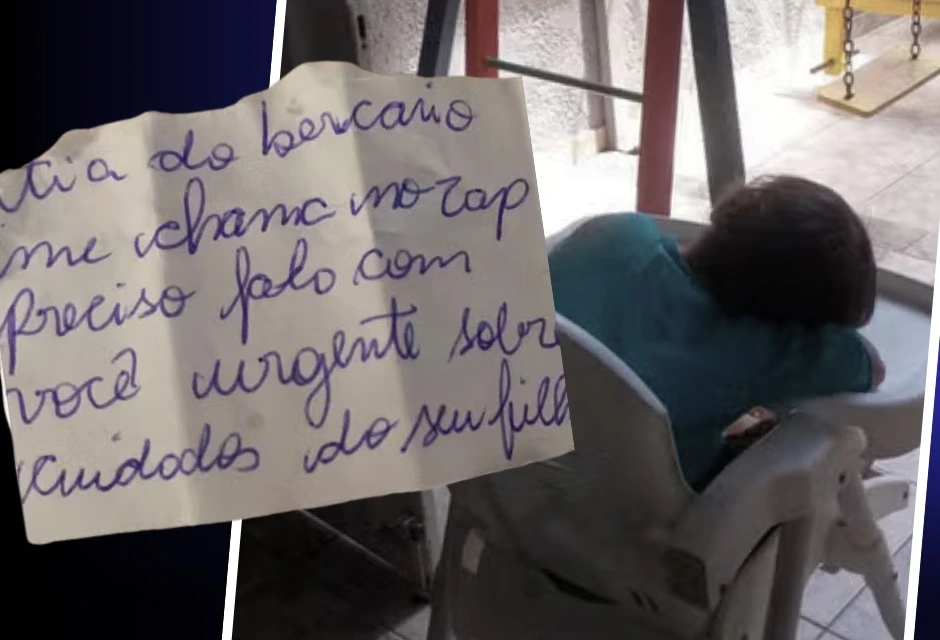 tia do bercario
me chama no zap
preciso falo com
você urgente sobre
cuidados do seu filh